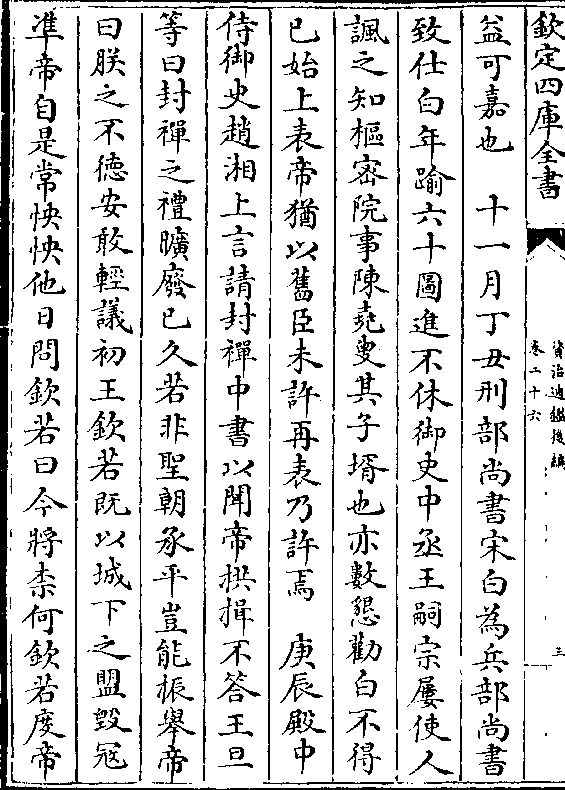 欽定四庫全書
資治通鑑後編
卷二十六
三
益可嘉也　十一月丁丑刑部尚書宋白為兵部尚書
致仕白年踰六十圖進不休御史中丞王嗣宗屢使人
諷之知樞密院事陳堯叟其子壻也亦數懇勸白不得
已始上表帝猶以舊臣未許再表乃許焉　庚辰殿中
侍御史趙湘上言請封禪中書以聞帝拱揖不答王旦
等曰封禪之禮曠廢已久若非聖朝承平豈能振舉帝
曰朕之不德安敢輕議初王欽若既以城下之盟毀冦
凖帝自是常怏怏他日問欽若曰今將柰何欽若度帝